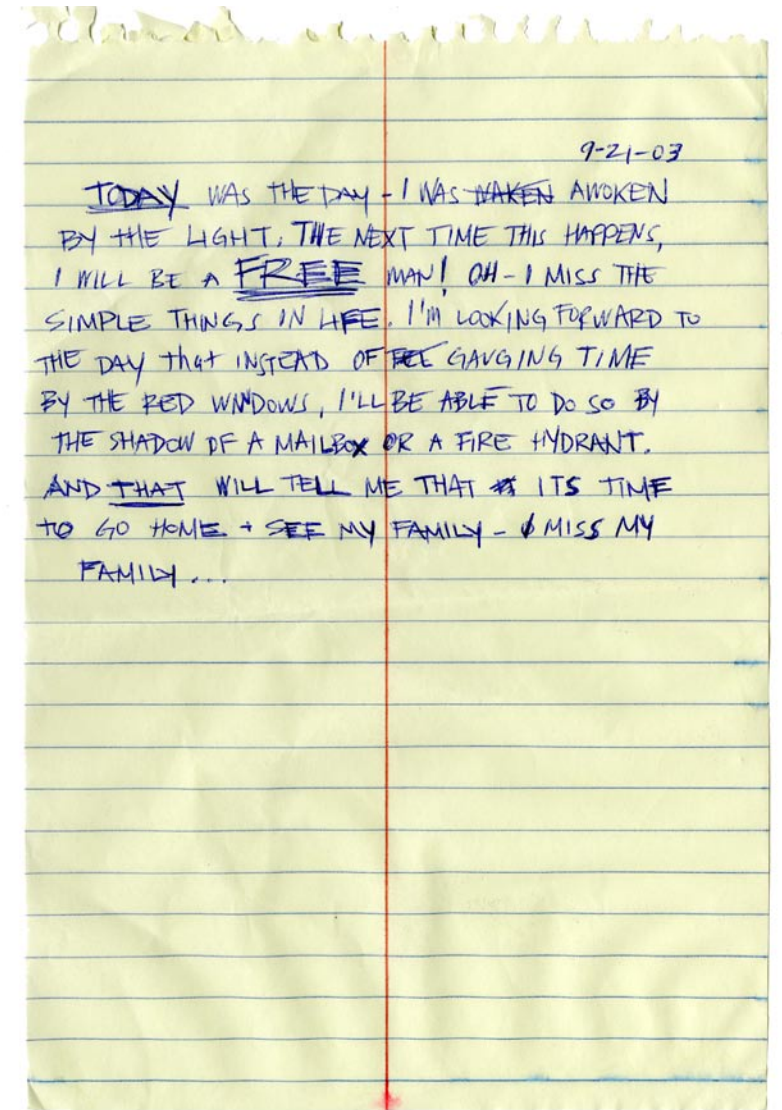 9-21-03
TODAY WAS THE DAY - I WAS WAKEN AWOKEN
BY THE LIGHT. THE NEXT TIME THIS HAPPENS,
I WILL BE A FREE MAN! OH - I MISS THE
SIMPLE THINGS IN LIFE. I'M LOOKING FORWARD TO
THE DAY that INSTEAD OF GAUGING TIME
BY THE RED WINDOWS, I'LL BE ABLE TO DO SO BY
THE SHADOW OF A MAILBOX OR A FIRE HYDRANT.
AND THAT WILL TELL ME THAT ITS TIME
TO GO HOME + SEE MY FAMILY - I MISS MY
FAMILY...